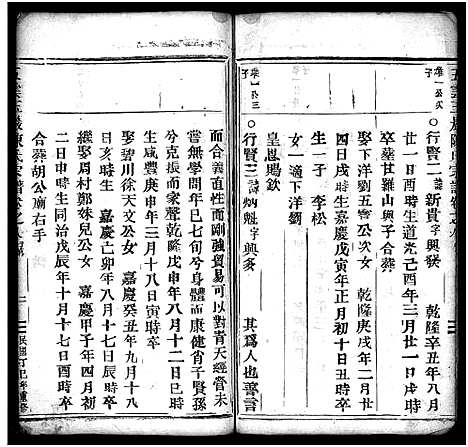 華一公次子
○行賢二諱新貴字興發 乾隆辛丑年八月
廿一日酉時生道光己酉年三月廿一日酉時
卒葬其雞山與子合葬
娶下洋劉五公次女 乾隆庚戌年二月廿
四日戌時生嘉慶戊寅年正月初十日戌時卒
生一子 李松
女一適下洋劉
華一公三子
○行賢三諱炳魁字興多 其為人也善言
恩恩賜欽
合義直性而剛強貿易可以對青天經營未
嘗無學問年已七旬兮身體而康健肯子賢孫
兮克振而家聲乾隆戊申年八月十二日戌時
生咸豐庚申年三月十八日寅時卒
娶碧川徐天文公女 嘉慶癸丑年九月十八
日申時生 嘉慶己卯年八月十七日辰時卒
繼娶周村鄭妹兒公女 嘉慶甲子年四月初
二日申時生同治戊辰年十月十七日酉時卒
合葬胡公廟右手
民國丁巳年重修